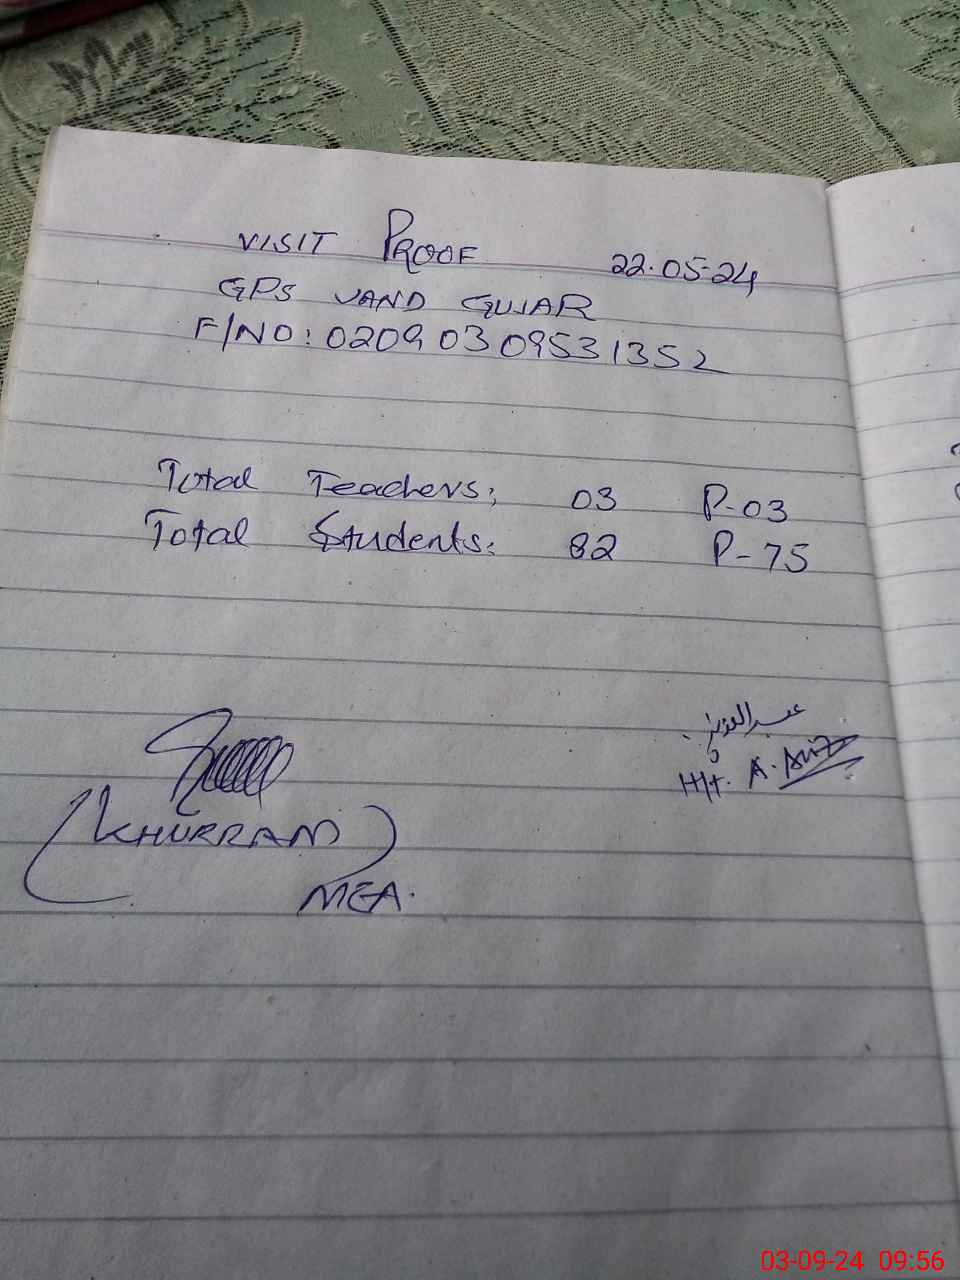 VISIT PROOF 22.05-24
GPS VAND GUJAR
F/NO: 0209030953 1352
Total Teachers: 03 P-03
Total Students: 82 P-75
عبدالعزیز
(KHURRAM) H/t. A. Aziz
MEA.
03-09-24 09:56